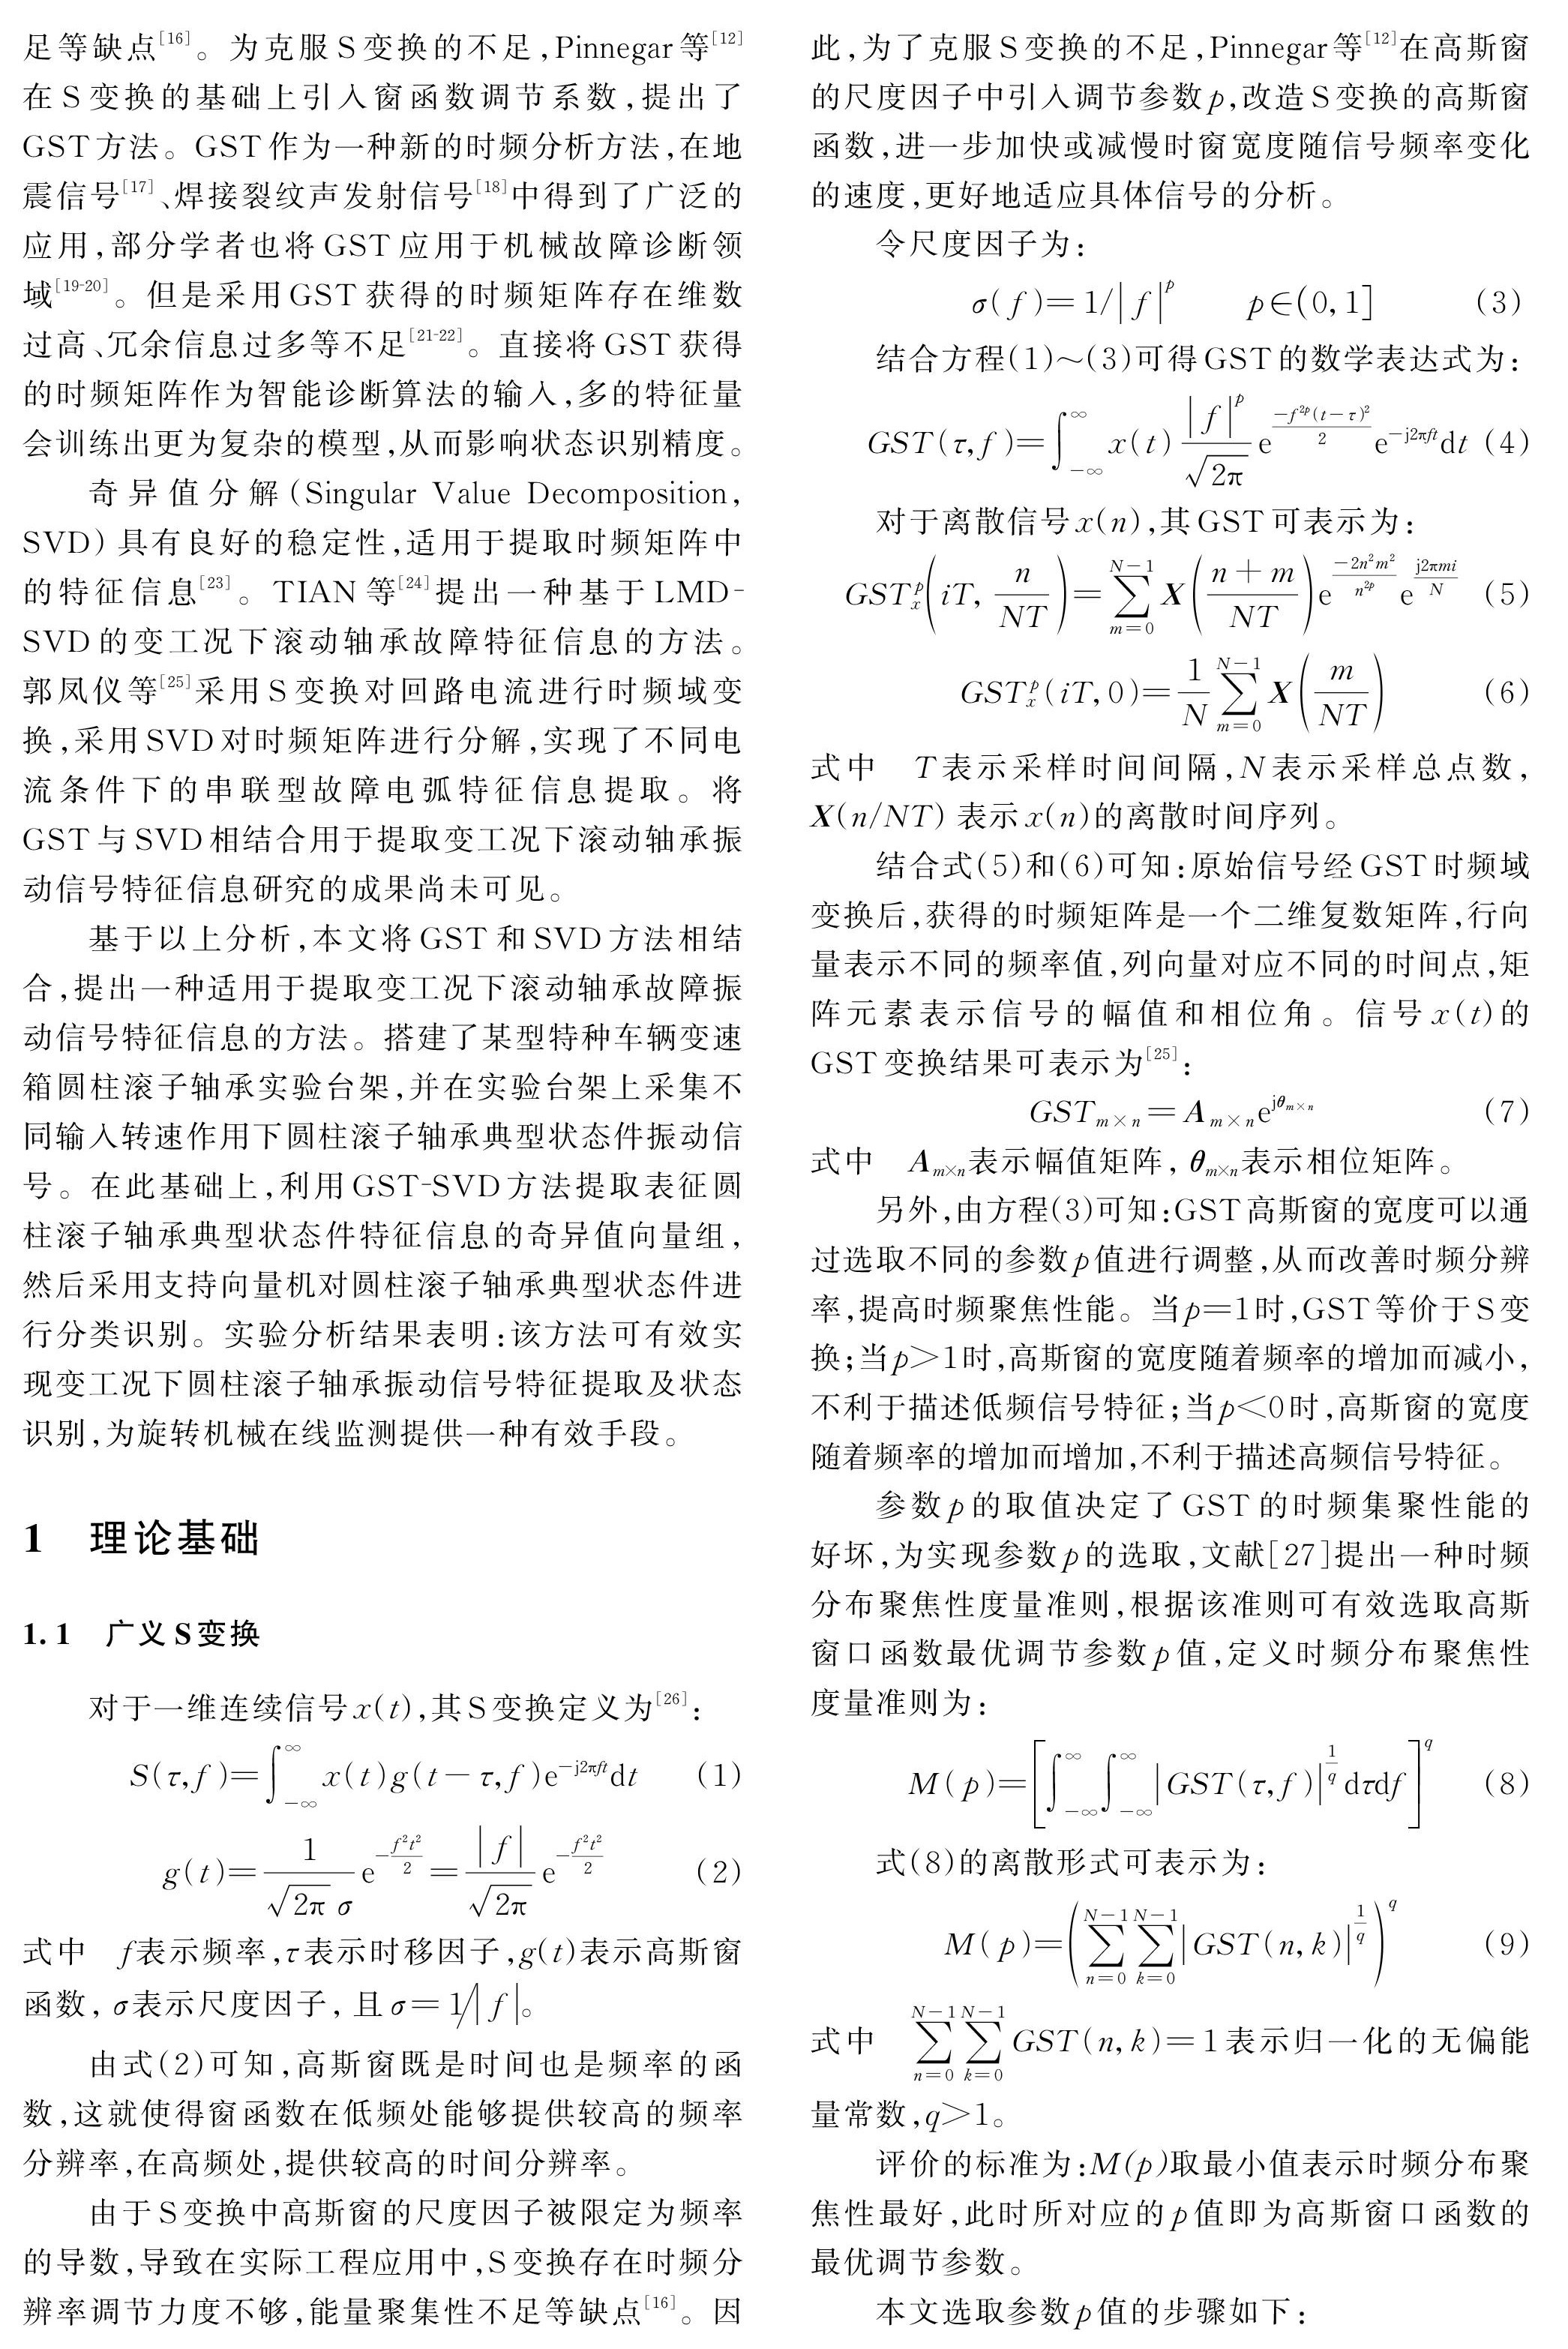 足等缺点[16]。为克服S变换的不足,Pinnegar等[12]
在S变换的基础上引入窗函数调节系数,提出了
GST方法。GST作为一种新的时频分析方法,在地
震信号[17]、焊接裂纹声发射信号[18]中得到了广泛的
应用,部分学者也将GST应用于机械故障诊断领
域[19-20]。但是采用GST获得的时频矩阵存在维数
过高、冗余信息过多等不足[21-22]。直接将GST获得
的时频矩阵作为智能诊断算法的输入,多的特征量
会训练出更为复杂的模型,从而影响状态识别精度。
奇异值分解(Singular Value Decomposition,
SVD)具有良好的稳定性,适用于提取时频矩阵中
的特征信息[23]。TIAN等[24]提出一种基于LMD-
SVD的变工况下滚动轴承故障特征信息的方法。
郭凤仪等[25]采用S变换对回路电流进行时频域变
换,采用SVD对时频矩阵进行分解,实现了不同电
流条件下的串联型故障电弧特征信息提取。将
GST与SVD相结合用于提取变工况下滚动轴承振
动信号特征信息研究的成果尚未可见。
基于以上分析,本文将GST和SVD方法相结
合,提出一种适用于提取变工况下滚动轴承故障振
动信号特征信息的方法。搭建了某型特种车辆变速
箱圆柱滚子轴承实验台架,并在实验台架上采集不
同输入转速作用下圆柱滚子轴承典型状态件振动信
号。在此基础上,利用GST-SVD方法提取表征圆
柱滚子轴承典型状态件特征信息的奇异值向量组,
然后采用支持向量机对圆柱滚子轴承典型状态件进
行分类识别。实验分析结果表明:该方法可有效实
现变工况下圆柱滚子轴承振动信号特征提取及状态
识别,为旋转机械在线监测提供一种有效手段。
1 理论基础
1.1 广义S变换
对于一维连续信号x(t),其S变换定义为[26]:
S(τ,f)=∫_{-∞}^{∞} x(t)g(t-τ,f)e^{-j2πft}dt (1)
g(t)=\frac{1}{\sqrt{2π}σ}e^{-\frac{f²t²}{2}}=\frac{|f|}{\sqrt{2π}}e^{-\frac{f²t²}{2}} (2)
式中 f表示频率,τ表示时移因子,g(t)表示高斯窗
函数,σ表示尺度因子,且σ=1/|f|。
由式(2)可知,高斯窗既是时间也是频率的函
数,这就使得窗函数在低频处能够提供较高的频率
分辨率,在高频处,提供较高的时间分辨率。
由于S变换中高斯窗的尺度因子被限定为频率
的导数,导致在实际工程应用中,S变换存在时频分
辨率调节力度不够,能量聚集性不足等缺点[16]。因
此,为了克服S变换的不足,Pinnegar等[12]在高斯窗
的尺度因子中引入调节参数p,改造S变换的高斯窗
函数,进一步加快或减慢时窗宽度随信号频率变化
的速度,更好地适应具体信号的分析。
令尺度因子为:
σ(f)=1/|f|^p p∈(0,1] (3)
结合方程(1)~(3)可得GST的数学表达式为:
GST(τ,f)=∫_{-∞}^{∞} x(t)\frac{|f|^p}{\sqrt{2π}}e^{\frac{-f^{2p}(t-τ)²}{2}}e^{-j2πft}dt (4)
对于离散信号x(n),其GST可表示为:
GST_x^p(iT,\frac{n}{NT})=∑_{m=0}^{N-1} X(\frac{n+m}{NT})e^{\frac{-2n²m²}{n^{2p}}}e^{\frac{j2πmi}{N}} (5)
GST_x^p(iT,0)=\frac{1}{N}∑_{m=0}^{N-1} X(\frac{m}{NT}) (6)
式中 T表示采样时间间隔,N表示采样总点数,
X(n/NT)表示x(n)的离散时间序列。
结合式(5)和(6)可知:原始信号经GST时频域
变换后,获得的时频矩阵是一个二维复数矩阵,行向
量表示不同的频率值,列向量对应不同的时间点,矩
阵元素表示信号的幅值和相位角。信号x(t)的
GST变换结果可表示为[25]:
GST_{m×n}=A_{m×n}e^{jθ_{m×n}} (7)
式中 A_{m×n}表示幅值矩阵,θ_{m×n}表示相位矩阵。
另外,由方程(3)可知:GST高斯窗的宽度可以通
过选取不同的参数p值进行调整,从而改善时频分辨
率,提高时频聚焦性能。当p=1时,GST等价于S变
换;当p>1时,高斯窗的宽度随着频率的增加而减小,
不利于描述低频信号特征;当p<0时,高斯窗的宽度
随着频率的增加而增加,不利于描述高频信号特征。
参数p的取值决定了GST的时频集聚性能的
好坏,为实现参数p的选取,文献[27]提出一种时频
分布聚焦性度量准则,根据该准则可有效选取高斯
窗口函数最优调节参数p值,定义时频分布聚焦性
度量准则为:
M(p)=[∫_{-∞}^{∞}∫_{-∞}^{∞}|GST(τ,f)|^{\frac{1}{q}}dτdf]^q (8)
式(8)的离散形式可表示为:
M(p)=(∑_{n=0}^{N-1}∑_{k=0}^{N-1}|GST(n,k)|^{\frac{1}{q}})^q (9)
式中 ∑_{n=0}^{N-1}∑_{k=0}^{N-1}GST(n,k)=1表示归一化的无偏能
量常数,q>1。
评价的标准为:M(p)取最小值表示时频分布聚
焦性最好,此时所对应的p值即为高斯窗口函数的
最优调节参数。
本文选取参数p值的步骤如下: